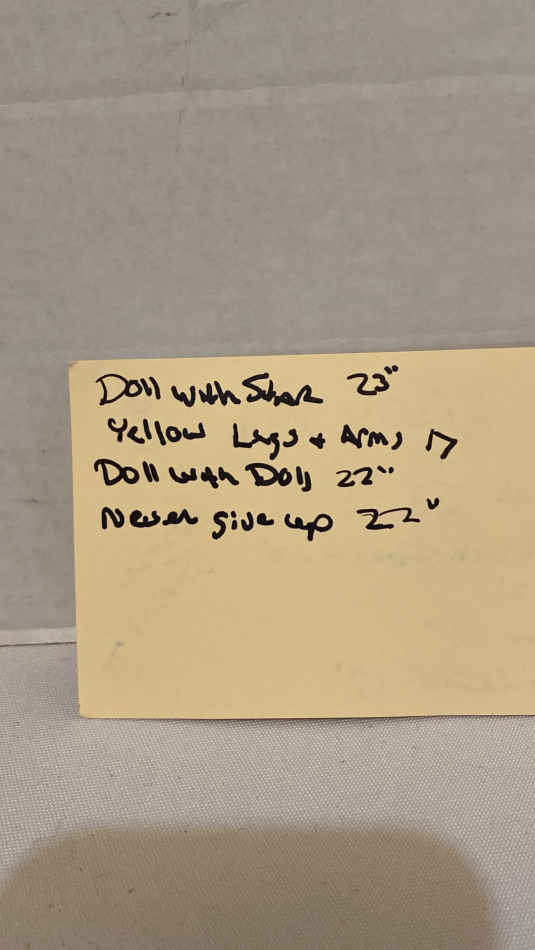 Doll with 23"
Yellow Legs + Arms 17
Doll with Doll 22"
Never give up 22"